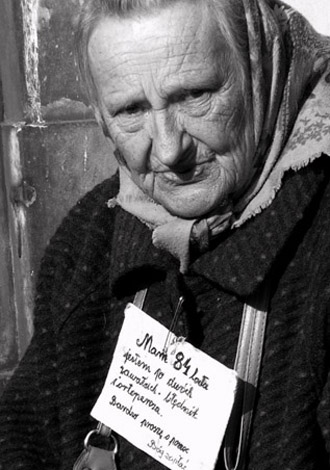 Mam 84 lata
jestem po dwóch
zawałach. błędnik
i
Bardzo proszę o pomoc
Bóg zapłać